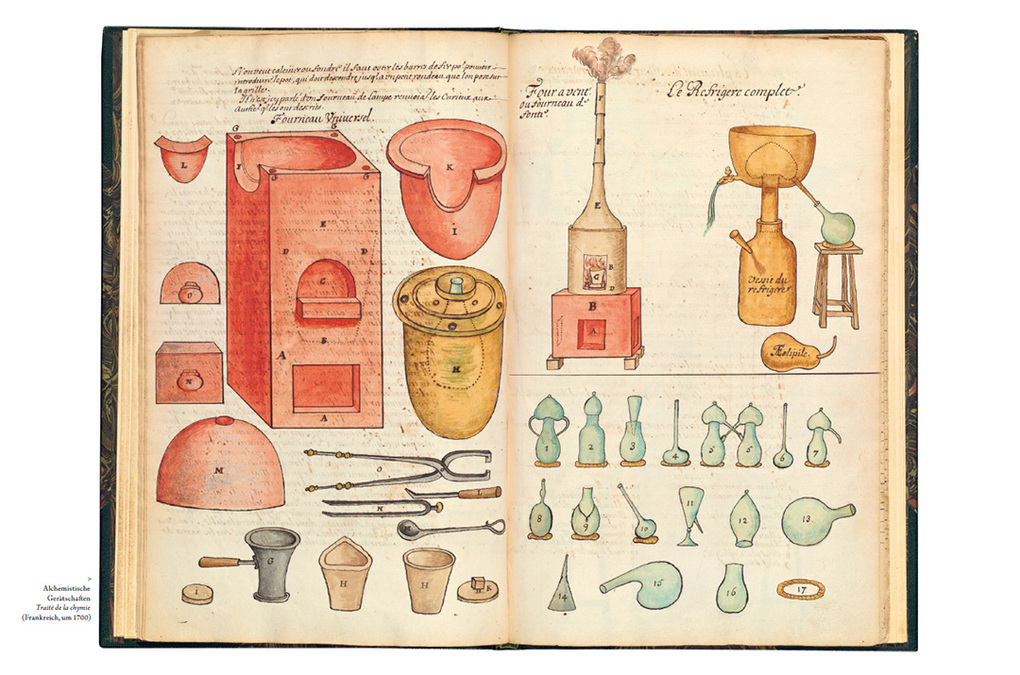 Si on veut calciner ou fondre il faut oster les barres de fer pour pouvoir
introduire le pot, qui doit descendre jusqu'a un petit rondeau que l'on pose sur
la grille.
Il n'est icy parlé d'un fourneau de lampe renvoiant les Curieux aux
Auth: qui les ont descrits.
Fourneau Universel.
L
G
G
I
G
G
E
D
D
C
B
A
A
K
I
O
N
M
H
O
N
G
H
H
I
K
Four a vent
ou fourneau de
fonte.
F
F
E
B
C
D
B
A
Le Refrigere complet.
Vessie du
refrigere
Æolipile.
1
2
3
4
5
5
6
7
8
9
10
11
12
13
14
15
16
17
>
Alchemistische
Gerätschaften
Traité de la chymie
(Frankreich, um 1700)